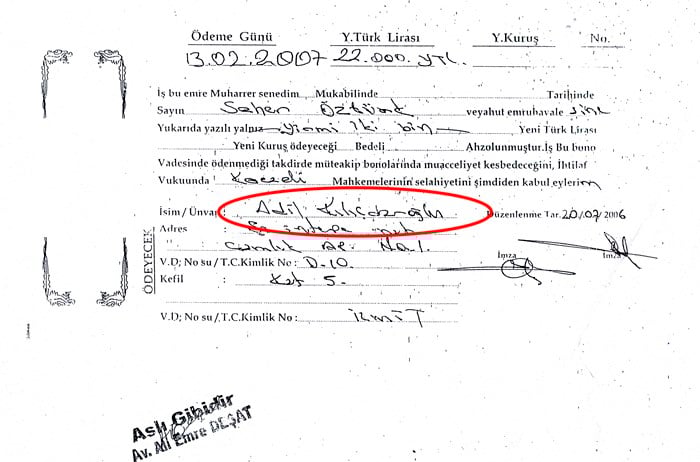 Ödeme Günü Y.Türk Lirası Y.Kuruş No.
13.02.2007 22.000. YTL.
İş bu emre Muharrer senedim Mukabilinde Tarihinde
Sayın Seher Öztürk veyahut emruhavale
Yukarıda yazılı yalnız Yirmi iki bin Yeni Türk Lirası
Yeni Kuruş ödeyeceğ Bedeli Ahzolunmuştur.İş Bu bono
Vadesinde ödenmediği takdirde müteakip bonolarında muacceliyet kesbedeceğini, İhtilaf
Vukuunda Kocaeli Mahkemelerinin selahiyetini şimdiden kabul eylerim
İsim / Ünvan : Adil Kılıçdaroğlu Düzenlenme Tar. 20/07/2006
Adres :
No.1.
İmza İmza
V.D; No su / T.C.Kimlik No : D.10.
Kefil : Kat 5.
V.D; No su / T.C.Kimlik No : İzmit
ÖDEYECEK
Aslı Gibidir
Av. Ali Emre DEŞAT